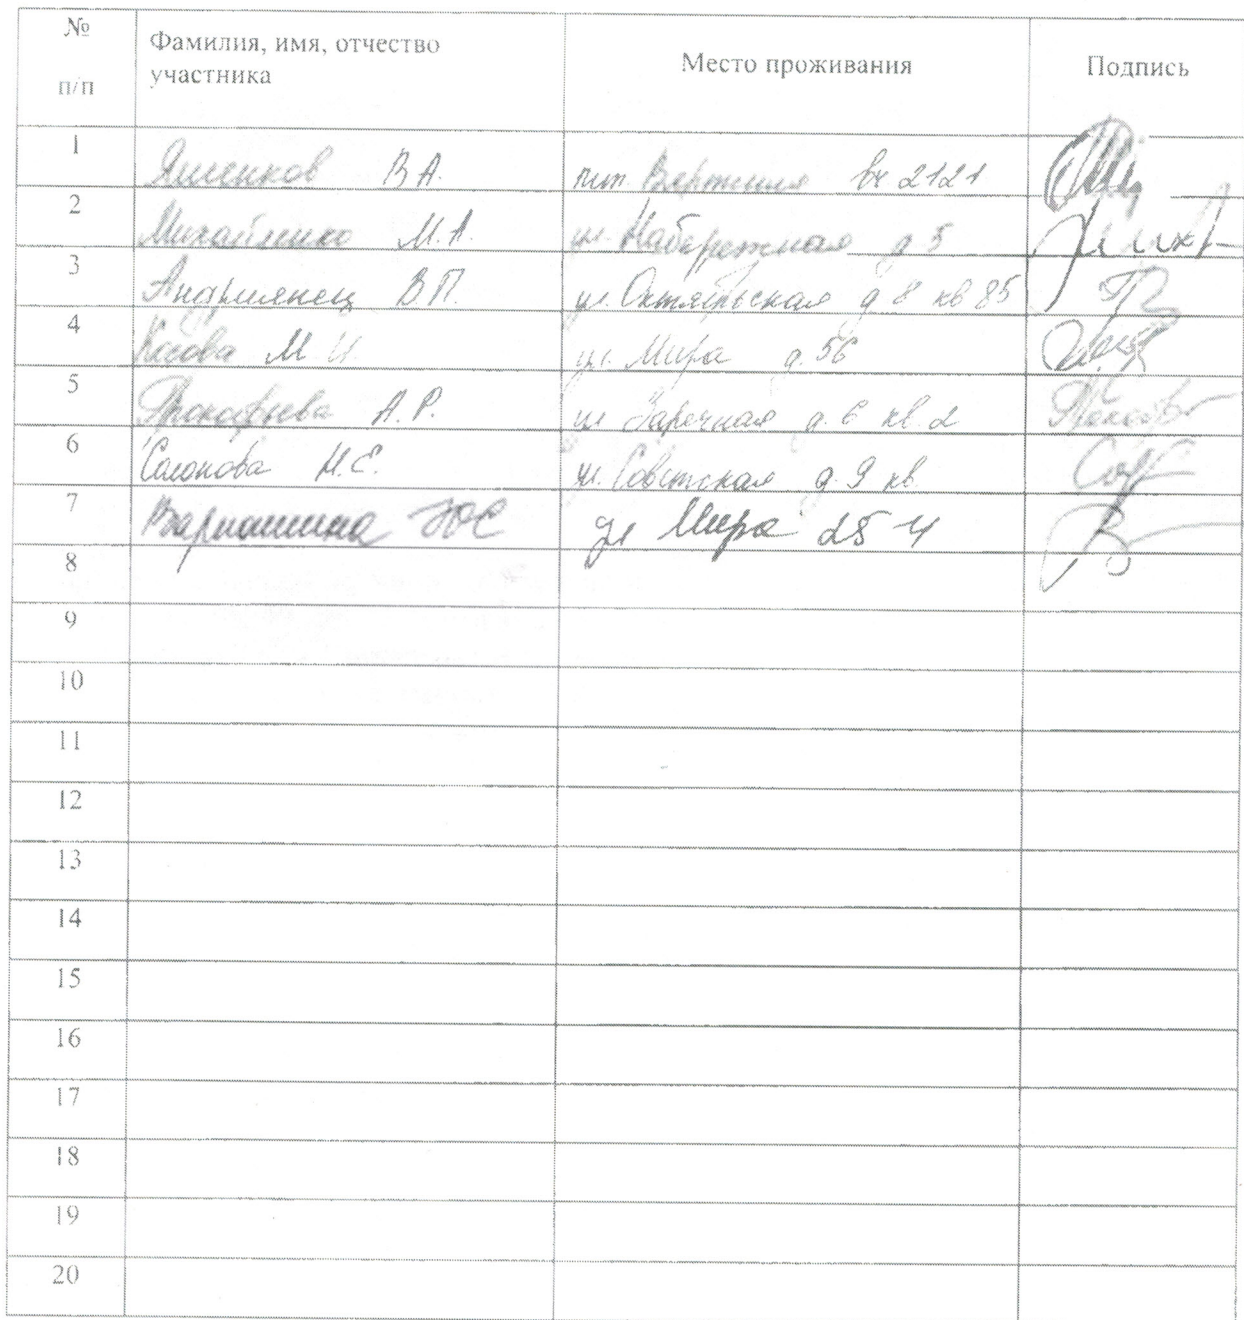 № п/п Фамилия, имя, отчество участника Место проживания Подпись
1 Яшенков В.А. пгт. вч 2121
2 Михайленко М.А. ул. Набережная д 5
3 Андриянец В.П. ул. Октябрьская д 8 кв 85
4 М.И. ул. Мира д. 56
5 Прокофьева А.Р. ул Заречная д. 6 кв. 2
6 Н.Е. ул. Советская д. 9 кв.
7 ЮС ул Мира
8
9
10
11
12
13
14
15
16
17
18
19
20